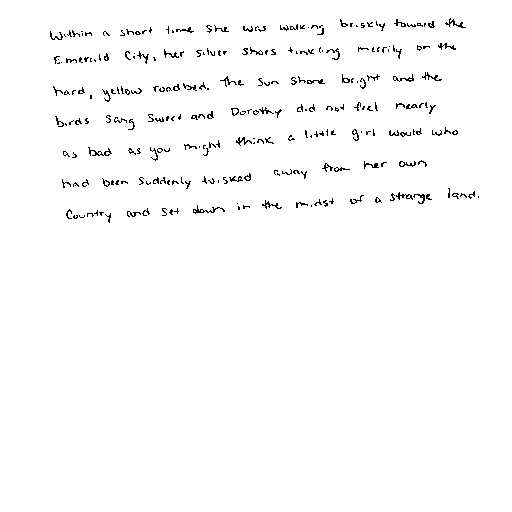 Within a short time she was walking briskly toward the
Emerald City, her silver shoes tinkling merrily on the
hard, yellow roadbed. The sun shone bright and the
birds sang sweet and Dorothy did not feel nearly
as bad as you might think a little girl would who
had been suddenly twisked away from her own
country and set down in the midst of a strange land.